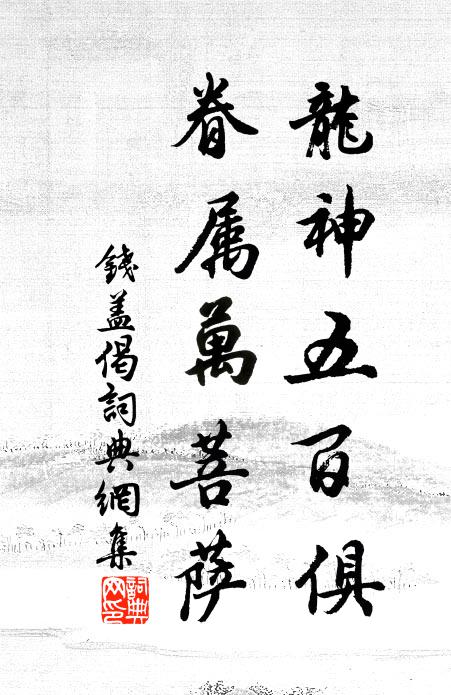 龍神五百俱
眷属萬菩薩
錢盖偈詞典網集
詞典网印